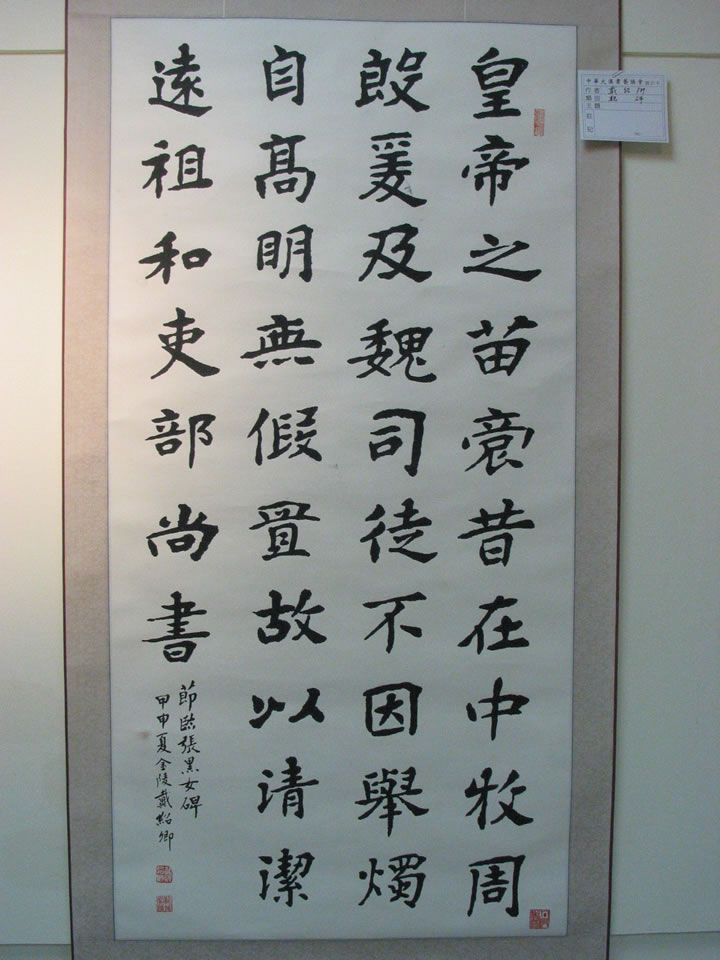 皇帝之苗裔昔在中牧周
殷爰及魏司徒不因舉燭
自髙明無假置故以清潔
遠祖和吏部尚書
節臨張黑女碑
甲申夏金陵戴紹卿
中華大漢書藝協會
作者 戴紹卿